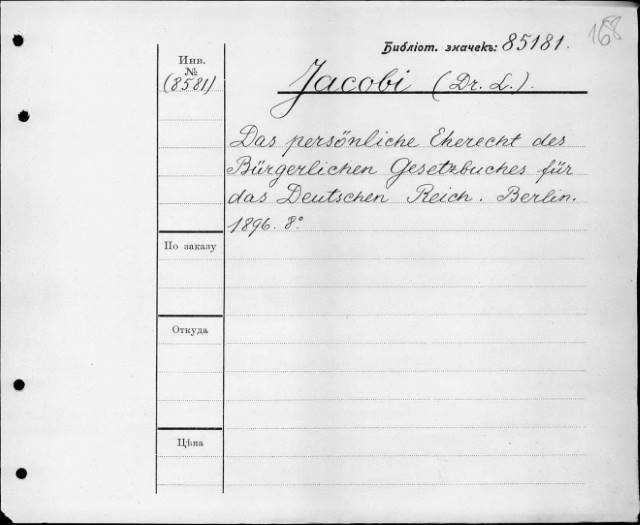 168
Библіот. значекъ: 85181.
Инв.
№
(8581)
Jacobi (Dr. L.).
Das persönliche Eherecht des
Bürgerlichen Gesetzbuches für
das Deutschen Reich. Berlin.
1896. 8°
По заказу
Откуда
Цѣна